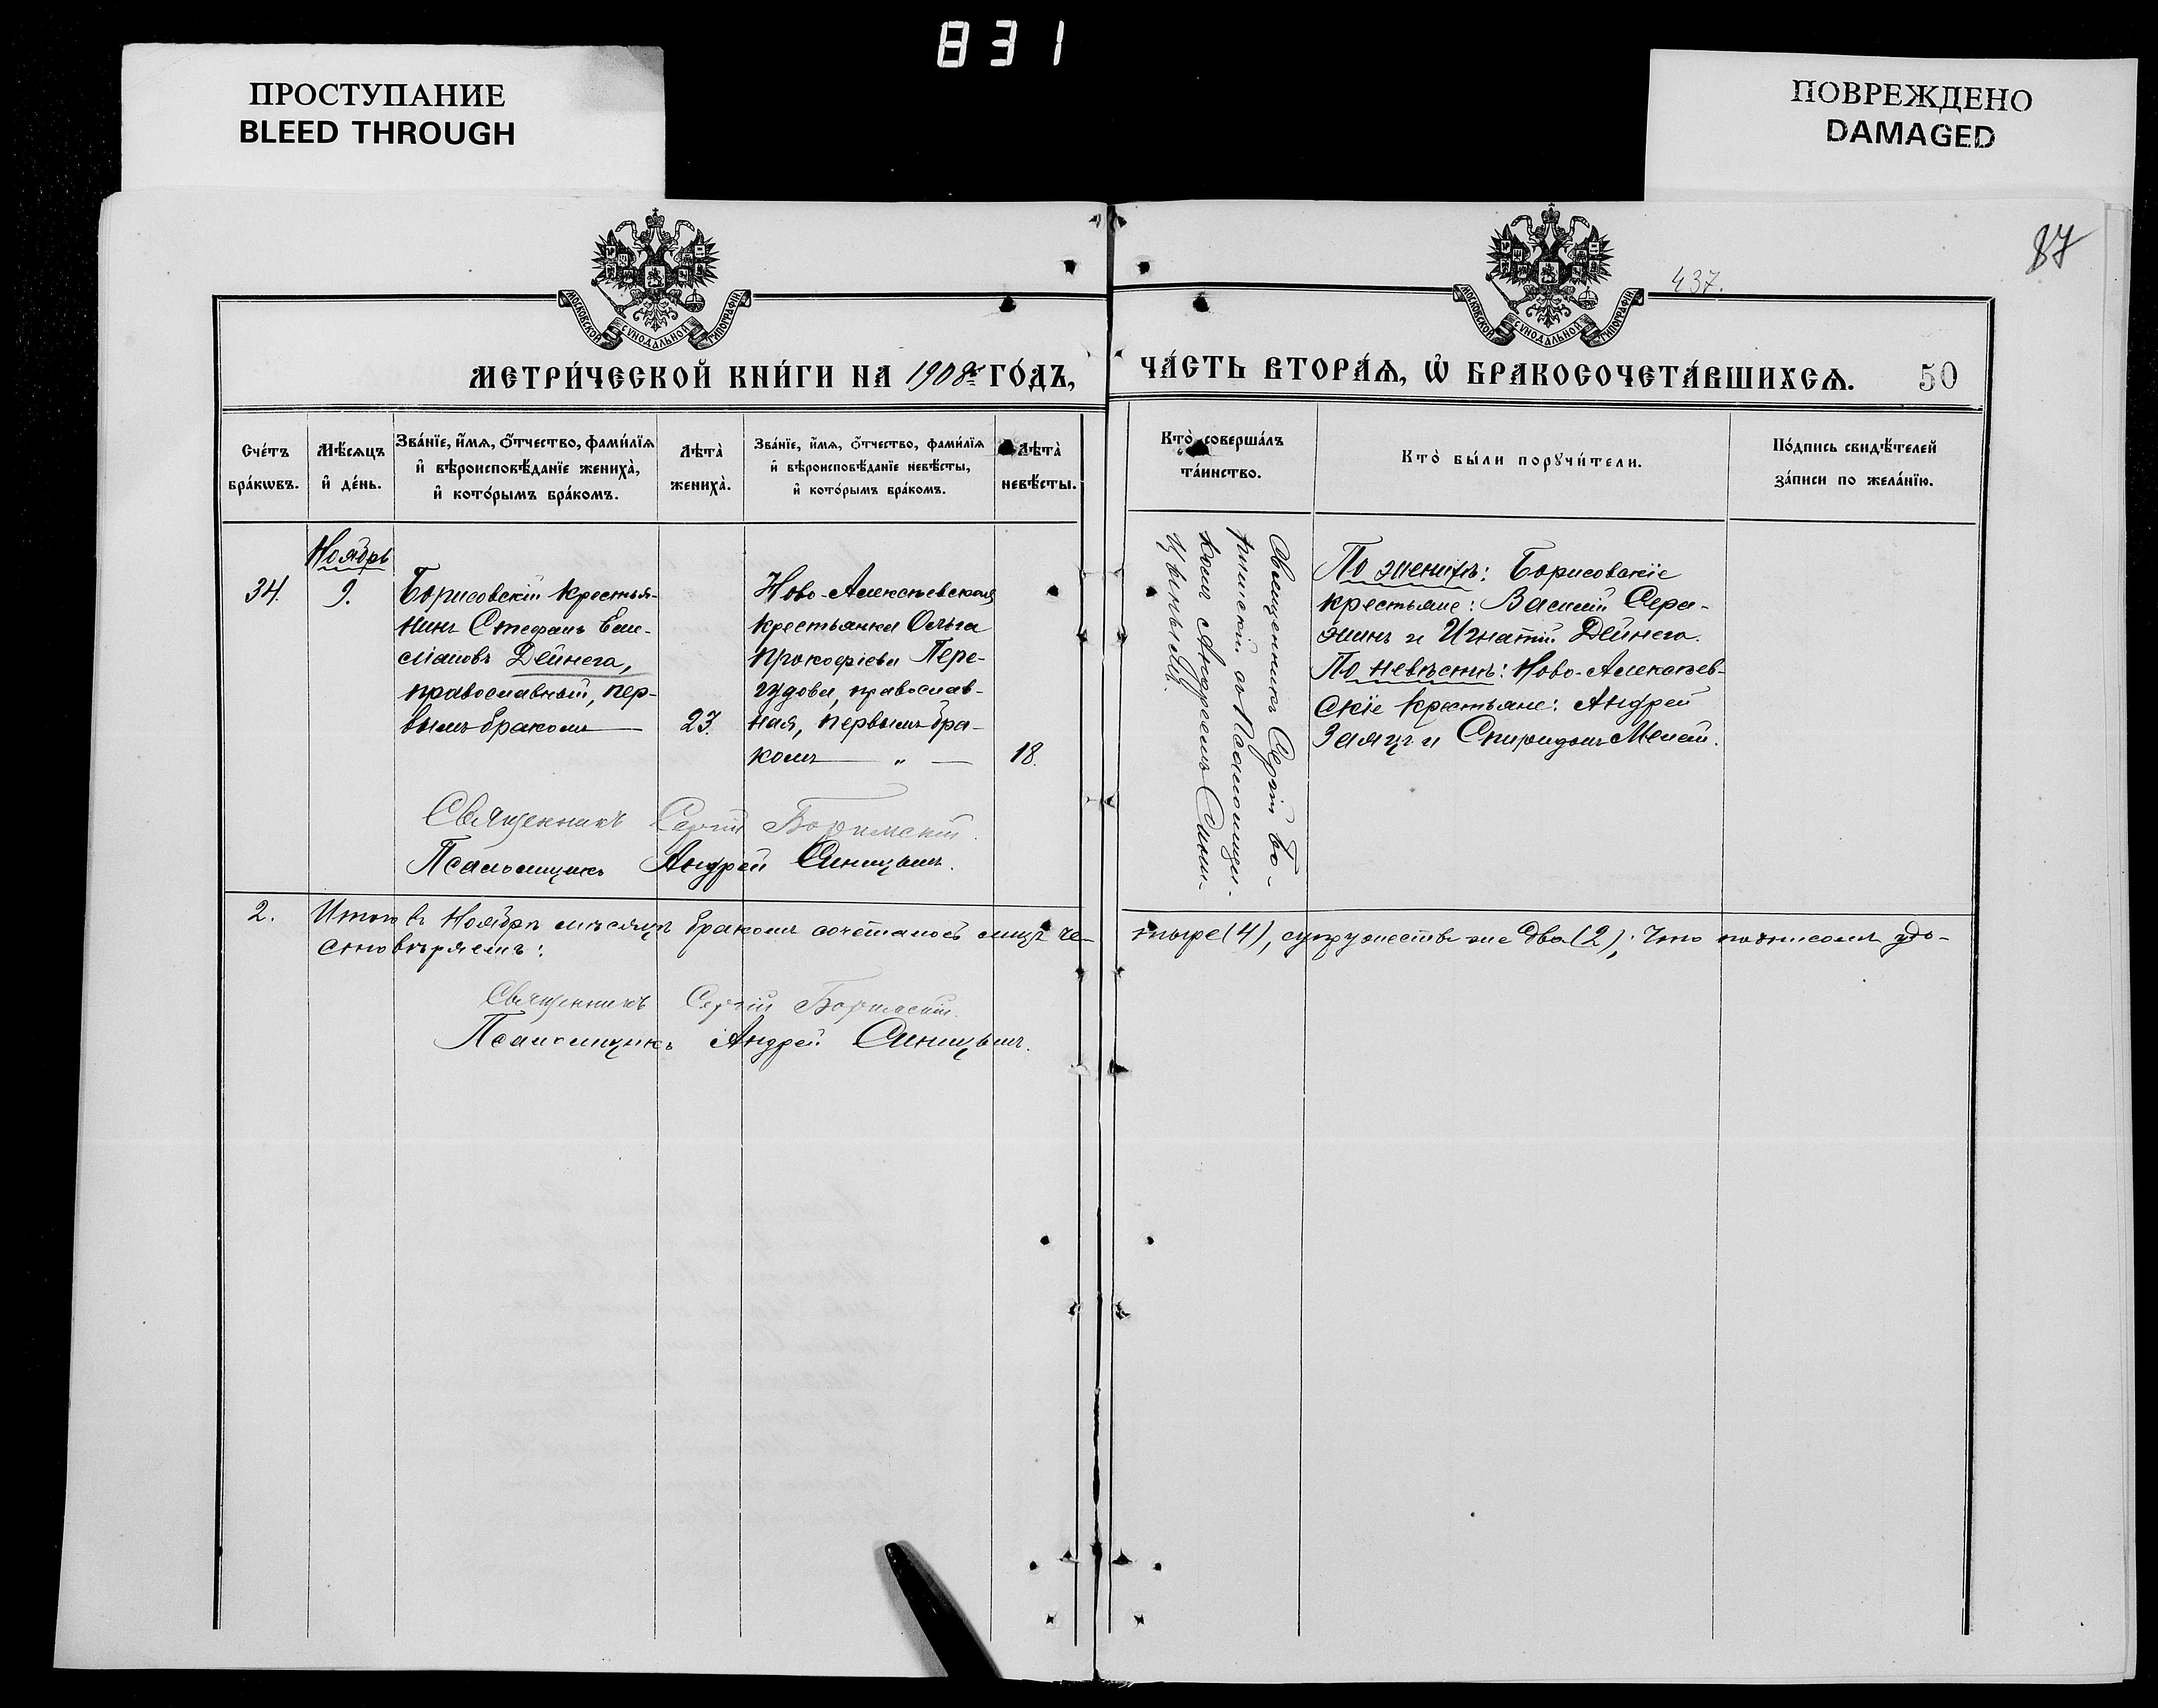 831
ПРОСТУПАНИЕ
BLEED THROUGH
ПОВРЕЖДЕНО
DAMAGED
87
437.
МОСКОВСКОЙ СѴНОДАЛЬНОЙ ТИПОГРАФІИ
МОСКОВСКОЙ СѴНОДАЛЬНОЙ ТИПОГРАФІИ
МЕТРИ́ЧЕСКОЙ КНИ́ГИ НА 1908й ГО́ДЪ,
ЧА́СТЬ ВТОРА́Ѧ, Ѡ҆ БРАКОСОЧЕТА́ВШИХСѦ.
50
Сче́тъ
бра́кѡвъ.
Мѣ́сѧцъ
и҆ де́нь.
Зва́нїе, и҆́мѧ, ѻ҆́тчество, фами́лїѧ
и҆ вѣроисповѣ́данїе жениха̀,
и҆ кото́рымъ бра́комъ.
Лѣта̀
жениха̀.
Зва́нїе, и҆́мѧ, ѻ҆́тчество, фами́лїѧ
и҆ вѣроисповѣ́данїе невѣ́сты,
и҆ кото́рымъ бра́комъ.
Лѣта̀
невѣ́сты.
Кто̀ соверша́лъ
та́инство.
Кто̀ бы́ли порꙋчи́тели.
По́дпись свидѣ́телей
за́писи по жела́нїю.
Ноябрь
34.
9.
Борисовскій крестья-
нинъ Стефанъ Еми-
ліановъ Дейнега,
православный, пер-
вымъ бракомъ —
23.
Ново-Алексѣевская
крестьянка Ольга
Прокофіева Пере-
гудова, православ-
ная, первымъ бра-
комъ — „ —
18.
Священникъ Сергій Бо-
римскій съ Псаломщи-
комъ Андреемъ Сини-
цынымъ.
По женихѣ: Борисовскіе
крестьяне: Василій Сера-
жинъ и Игнатій Дейнега.
По невѣстѣ: Ново-Алексѣев-
скіе крестьяне: Андрей
Заяцъ и Спиридонъ
Священникъ Сергій Боримскій.
Псаломщикъ Андрей Синицынъ.
2.
Итого въ Ноябрѣ мѣсяцѣ бракомъ сочеталось лицъ че-
тыре (4), супружествъ же два (2); Что подписомъ удо-
стовѣряемъ:
Священникъ Сергій Боримскій.
Псаломщикъ Андрей Синицынъ.